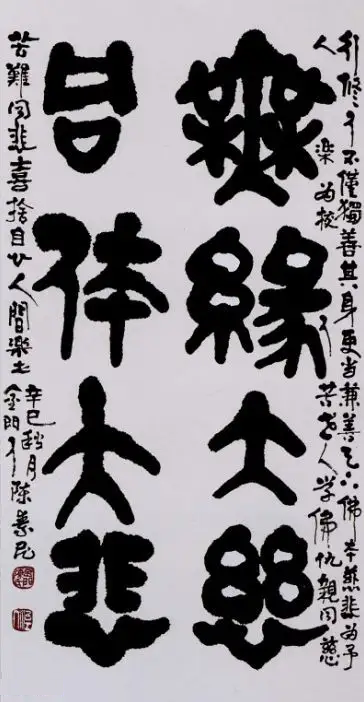 行修行不僅獨善其身更當兼善天下佛本慈悲為予
人
樂為拔
苦世人學佛仇親同慈
無緣大慈
同体大悲
苦難同悲喜捨自必人間樂土
辛巳秋月
金門
陳篆